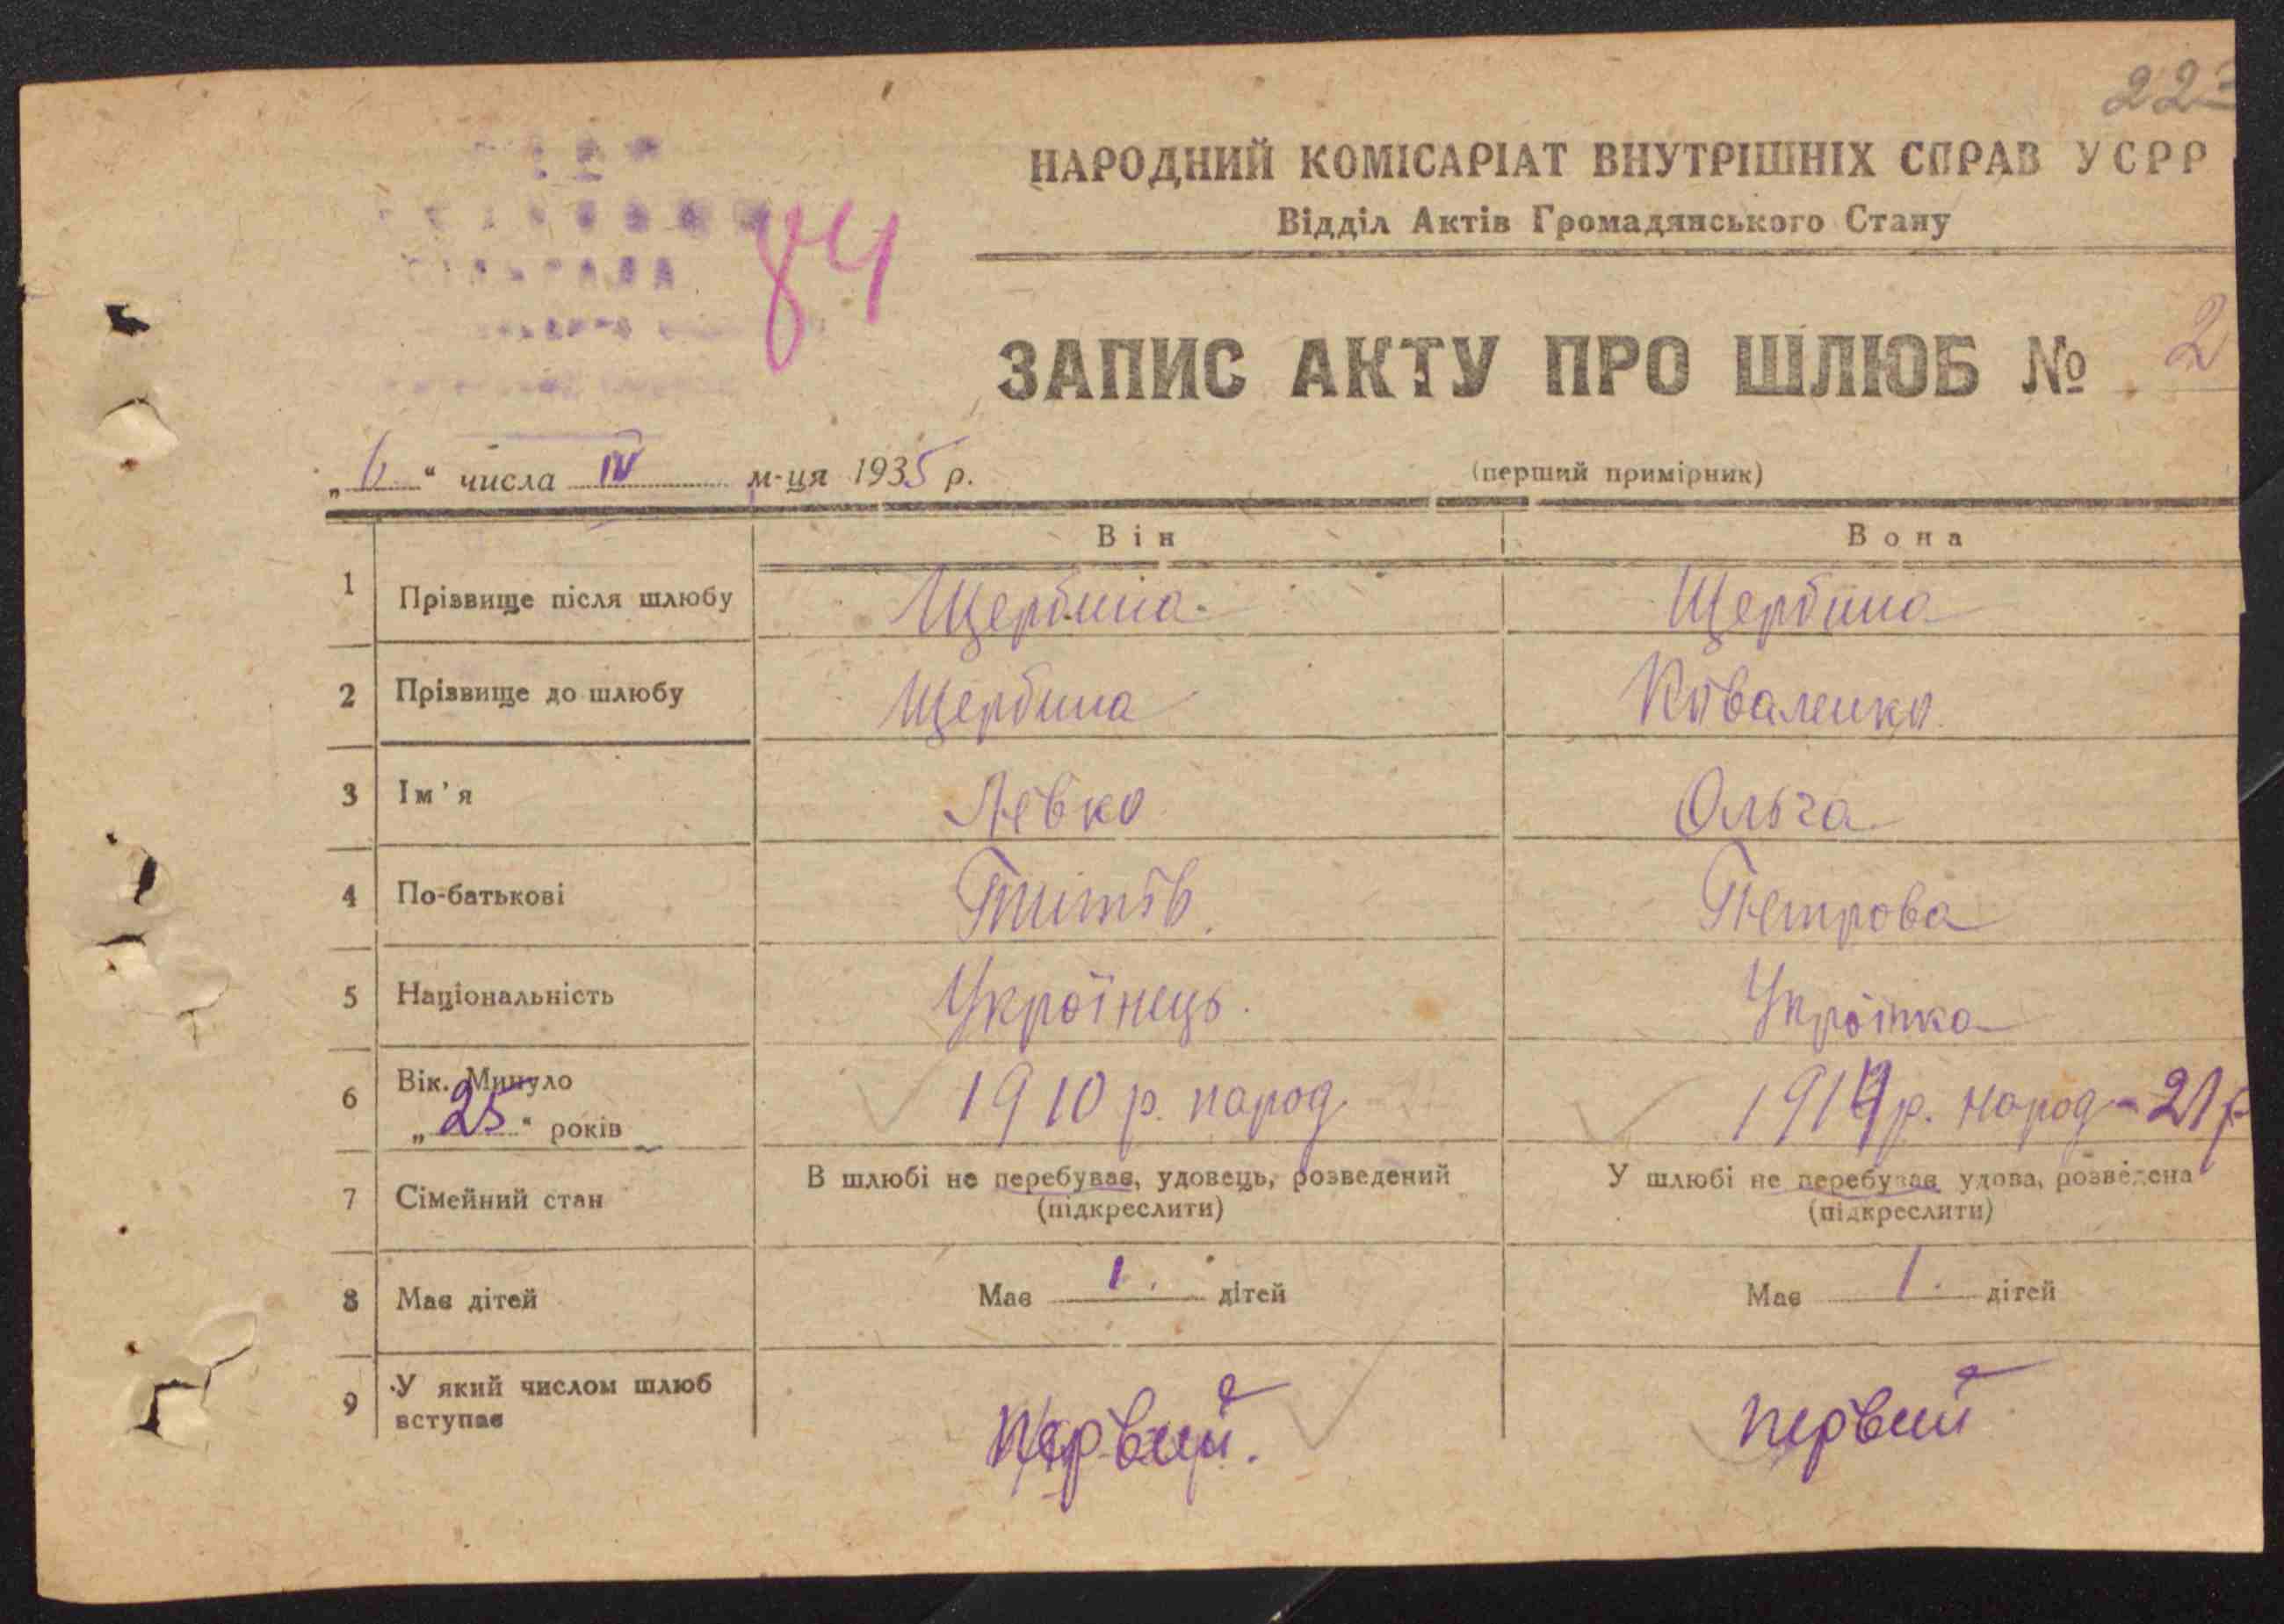 НАРОДНИЙ КОМІСАРІАТ ВНУТРІШНІХ СПРАВ УСРР
Відділ Актів Громадянського Стану
84
ЗАПИС АКТУ ПРО ШЛЮБ № 2
„6“ числа IV м-ця 1935 р.
(перший примірник)
Він Вона
1 Прізвище після шлюбу Щербина Щербина
2 Прізвище до шлюбу Щербина Коваленко
3 Ім'я Левко Ольга
4 По-батькові Титів Петрова
5 Національність Українець Украінка
6 Вік. Минуло 1910 р. народ 1914 р. народ - 21 р
„25“ років
7 Сімейний стан В шлюбі не перебував, удовець, розведений У шлюбі не перебував удова, розведена
(підкреслити) (підкреслити)
8 Має дітей Має 1. дітей Має 1. дітей
9 У який числом шлюб
вступає первий. первий